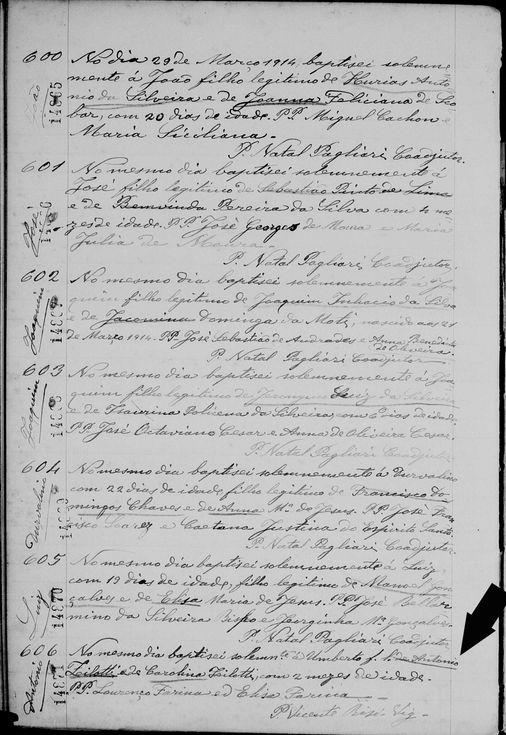 600
João
14365
No dia 29 de Março 1914, baptisei solemne
mente á João filho legitimo de Hurias Anto
nio da Silveira e de Joanna Feliciana de Sco
bar, com 20 dias de idade. P.P. Miguel Cachon e
Maria Siciliana.
P. Natal Pagliari, Coadjutor.
601
José
No mesmo dia baptisei solemnemente á
José filho legitimo de Sebastião Pinto de Lima
e de Bemvinda Pereira da Silva com 4 me
zes de idade. P.P. José Georges de Moura e Maria
Julia de Moura.
P. Natal Pagliari, Coadjutor.
602
Joaquim
No mesmo dia baptisei solemnemente á Joa
quim filho legitimo de Joaquim Ignacio da Silva
e de Jacomina Dominga da Mota, nascido aos 21
de Março 1914. PP. José Sebastião de Andrade e Anna Benedicta
de Oliveira.
P. Natal Pagliari Coadjutor
603
Joaquim
No mesmo dia baptisei solemnemente á Joa
quim filho legitimo de Jeronymo Luiz da Silveira
e de Policena da Silveira, com 6 dias de idade
P.P. José Octaviano Cesar e Anna de Oliveira Cesar.
P. Natal Pagliari Coadjutor
604
Durvalino
No mesmo dia baptisei solemnemente á Durvalino
com 22 dias de idade, filho legitimo de Francisco Do
mingos Chaves e de Anna Mª de Jesus. P.P. José Fran
cisco Soares e Caetana Justina do Espirito Santo
P. Natal Pagliari Coadjutor.
605
Luiz
14370
No mesmo dia baptisei solemnemente á Luiz,
com 19 dias de idade, filho legitimo de Manoel Gon
çalves e de Elisa Maria de Jesus. P.P. José Bellar
mino da Silveira Bispo e Georginha Mª Gonçalves.
P. Natal Pagliari Coadjutor
606
Antonio
14371
No mesmo dia baptisei solemn.e á Umberto f. l. de Antonio
Zilotti e de Carolina Zilotti, com 2 mezes de idade.
P.P. Lourenço Farina ed Elisa Farina
P. Vicente Vig.